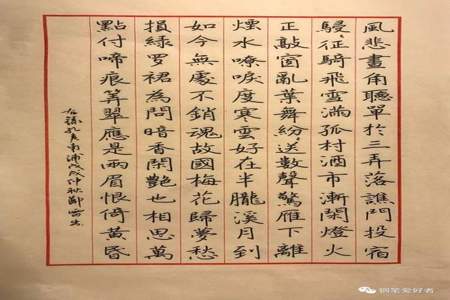 風悲畫角聽單於三弄落譙門投宿
駸〻征騎飛雪滿孤村酒市漸閑燈火
正敲窗亂葉舞紛〻送數聲驚雁下離
煙水嘹唳度寒雲好在半朧溪月到
如今無處不銷魂故國梅花歸夢愁
損綠罗裙為問暗香閑艷也相思萬
點付啼痕算翠應是兩眉恨倚黃昏
右錄孔夷南浦戊戌仲秋
钢笔爱好者